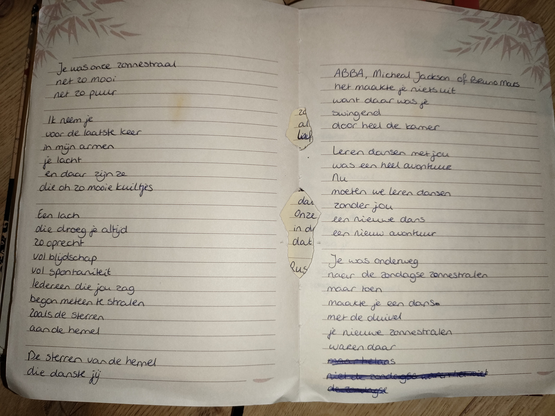 Je was onze zonnestraal
net zo mooi
net zo puur
Ik neem je
voor de laatste keer
in mijn armen
je lacht
en daar zijn ze
die oh zo mooie kuiltjes
Een lach
die droeg je altijd
zo oprecht
vol blijdschap
vol spontaniteit
Iedereen die jou zag
begon meteen te stralen
zoals de sterren
aan de hemel
De sterren van de hemel
die danste jij
zo
al
lief
dai
Onze
in d
dat
Rus
ABBA, Micheal Jackson of Bruno Mars
het maakte je niets uit
want daar was je
swingend
door heel de kamer
Leren dansen met jou
was een heel avontuur
Nu
moeten we leren dansen
zonder jou
een nieuwe dans
een nieuw avontuur
Je was onderweg
naar de zondagse zonnestralen
maar toen
maakte je een dans
met de duivel
je nieuwe zonnestralen
waren daar